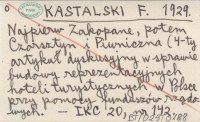 KASTALSKI F. 1929.
Najpierw Zakopane, potem
Czorsztyn i Piwniczna (4-ty
artykuł dyskusyjny w sprawie
budowy reprezentacyjnych
hoteli turystycznych w Polsce
przy pomocy funduszów rządo-
wych. — IKC 20, 142